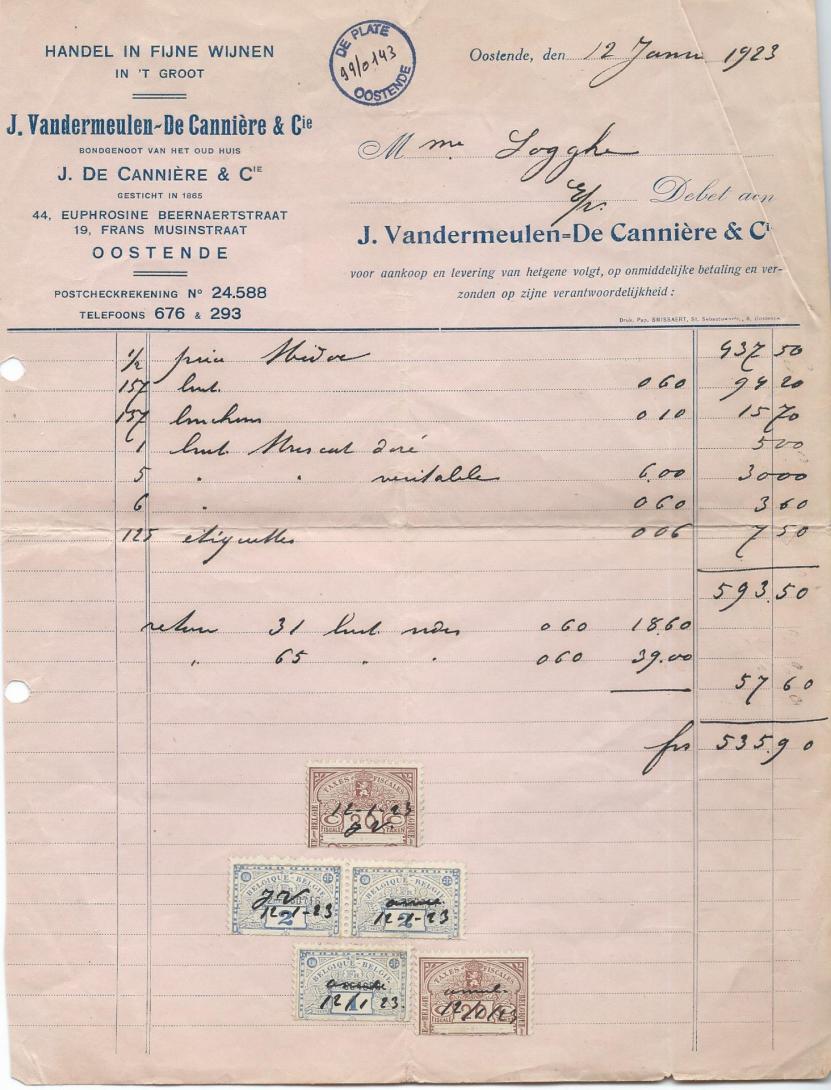 HANDEL IN FIJNE WIJNEN
IN 'T GROOT
J. Vandermeulen-De Cannière & Cie
BONDGENOOT VAN HET OUD HUIS
J. DE CANNIÈRE & CIE
GESTICHT IN 1865
44, EUPHROSINE BEERNAERTSTRAAT
19, FRANS MUSINSTRAAT
OOSTENDE
POSTCHECKREKENING No 24.588
TELEFOONS 676 & 293
DE PLATE
99/0143
OOSTENDE
Oostende, den 12 Janv 1923
Mme Logghe
E/v. Debet aan
J. Vandermeulen=De Cannière & Ci
voor aankoop en levering van hetgene volgt, op onmiddelijke betaling en ver-
zonden op zijne verantwoordelijkheid :
Druk. Pap. SMISSAERT, St.
1/2 pièce Médoc 437 50
157 bout. 0 60 94 20
157 bouchons 0 10 15 70
1 bout. Muscat doré 5 00
5 " " véritable 6.00 30 00
6 " 0 60 3 60
125 étiquettes 0 06 7 50
593.50
retour 31 bout. vides 0 60 18.60
" 65 " " 0 60 39.00
57 60
frs 535.90
TAXES FISCALES
12-1-23
20
JV
BELGIQUE-BELGIE
JV
12-1-23
2
BELGIQUE-BELGIE
12-1-23
2
BELGIQUE-BELGIE
12/1 23
1
TAXES FISCALES
12/1/23
20